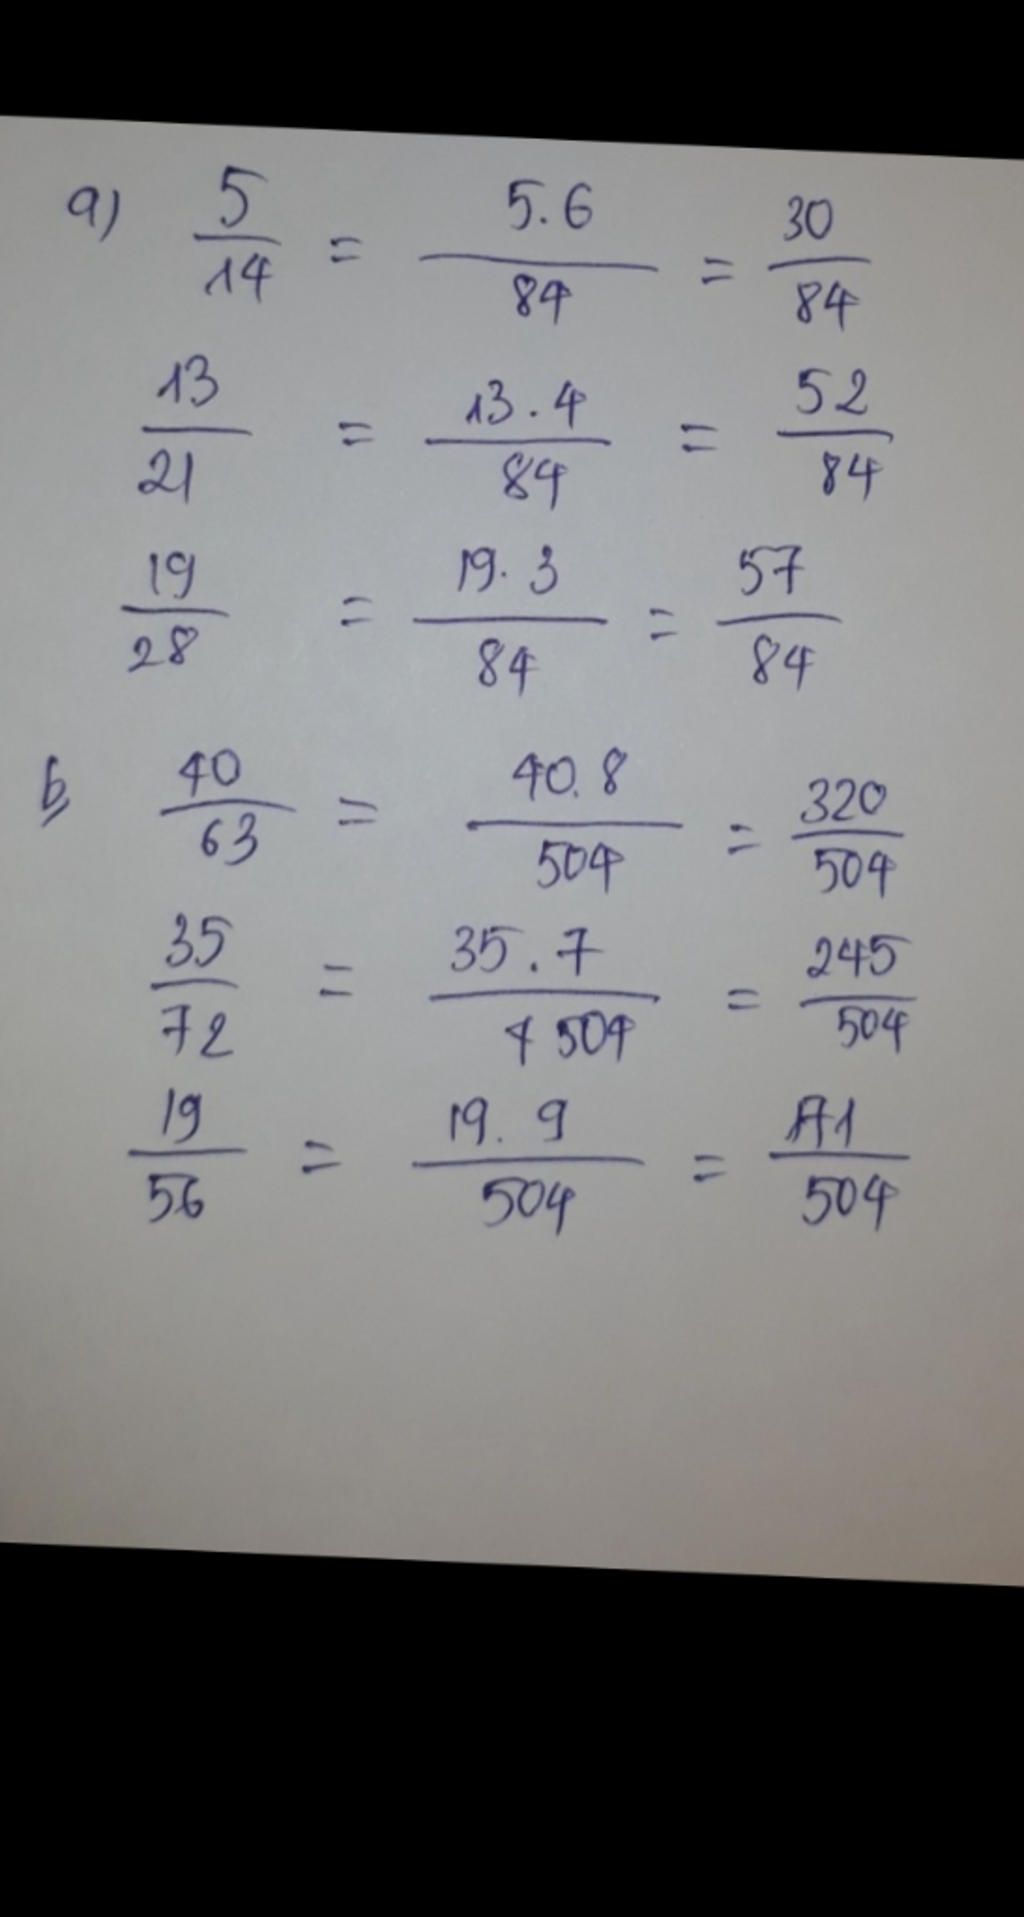 a) 5/14 = 5.6/84 = 30/84
13/21 = 13.4/84 = 52/84
19/28 = 19.3/84 = 57/84
b, 40/63 = 40.8/504 = 320/504
35/72 = 35.7/504 = 245/504
19/56 = 19.9/504 = 171/504